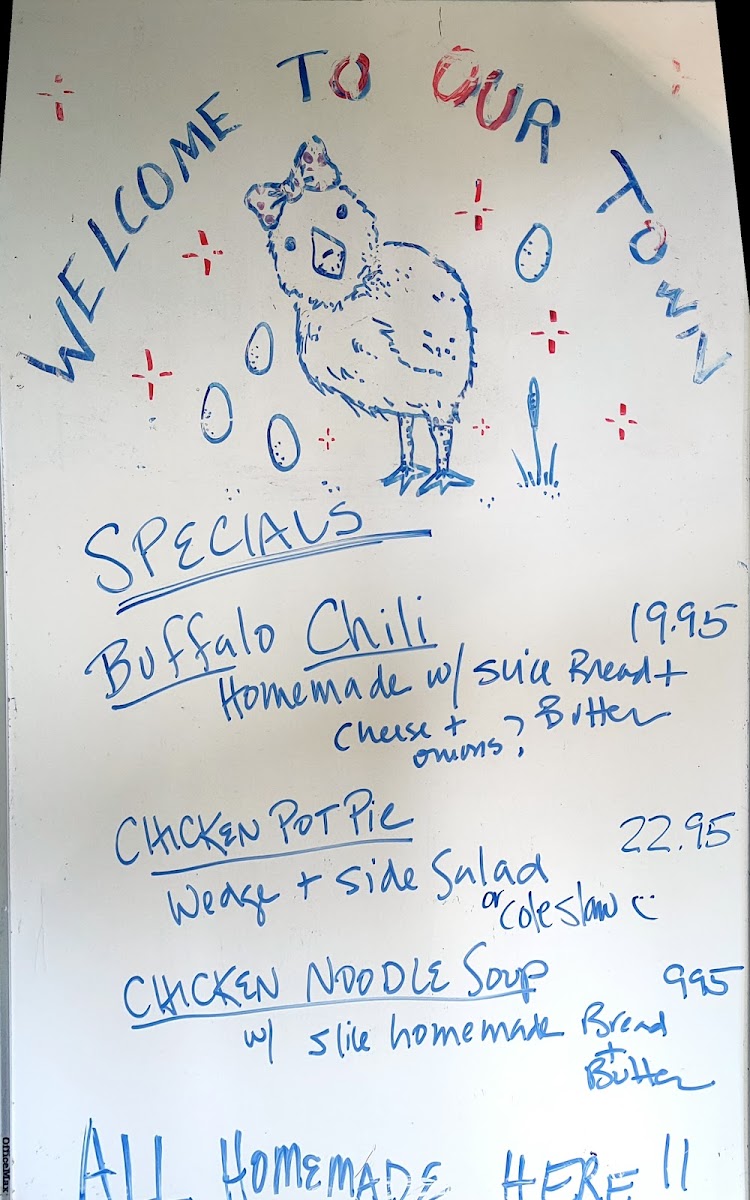 WELCOME TO OUR TOWN
SPECIALS
Buffalo Chili 19.95
Homemade w/ slice Bread +
Butter
Cheese +
onions?
CHICKEN POT PIE 22.95
Wedge + side Salad
or Coleslaw
CHICKEN NOODLE SOUP 995
w/ slice homemade Bread
+
Butter
ALL HOMEMADE HERE!!
OfficeMax